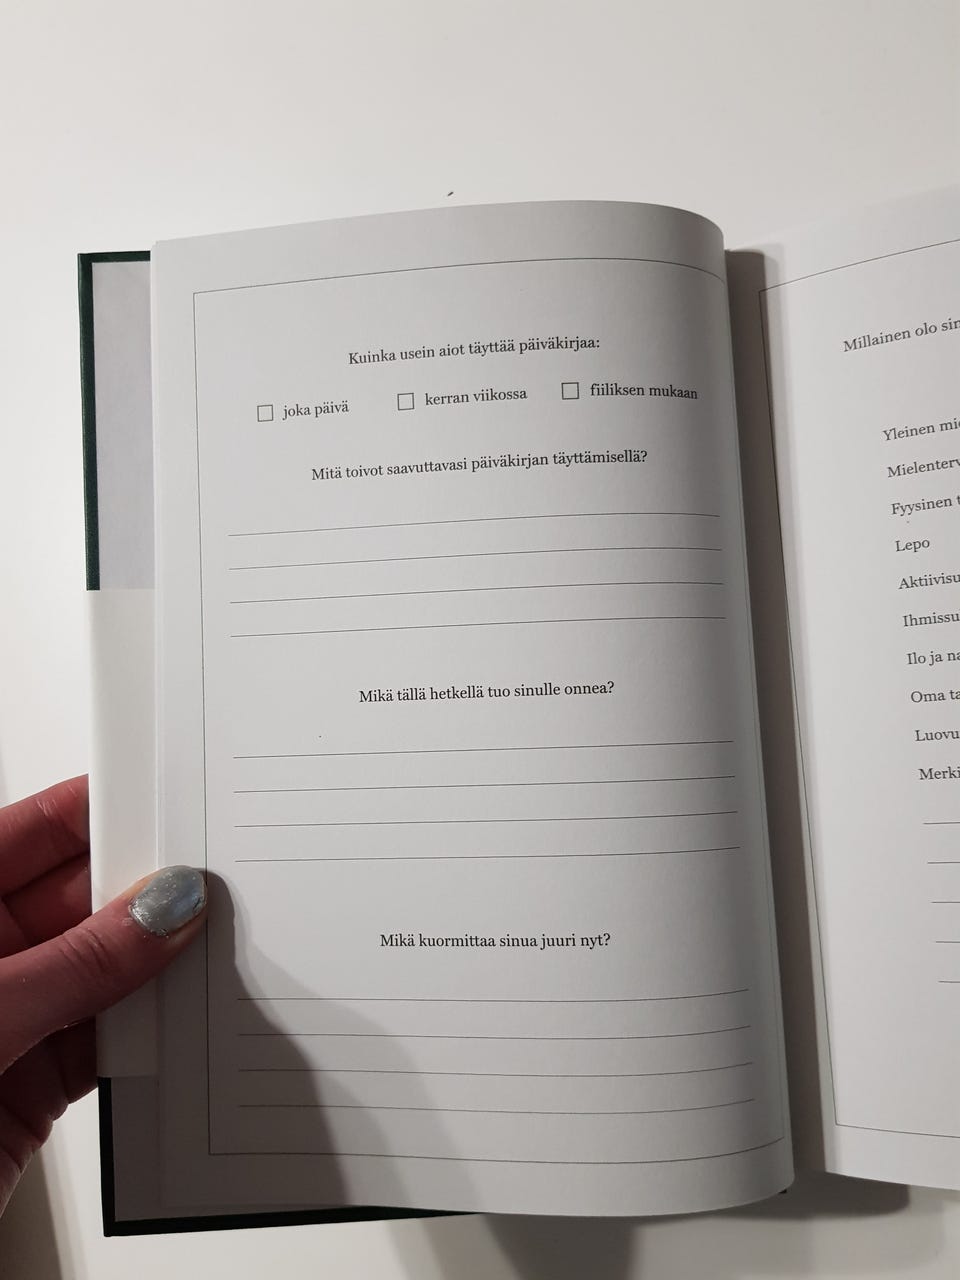 Kuinka usein aiot täyttää päiväkirjaa:
joka päivä kerran viikossa fiiliksen mukaan
Mitä toivot saavuttavasi päiväkirjan täyttämisellä?
Mikä tällä hetkellä tuo sinulle onnea?
Mikä kuormittaa sinua juuri nyt?
Millainen olo
Yleinen
Fyysinen
Lepo
Ilo ja
Oma